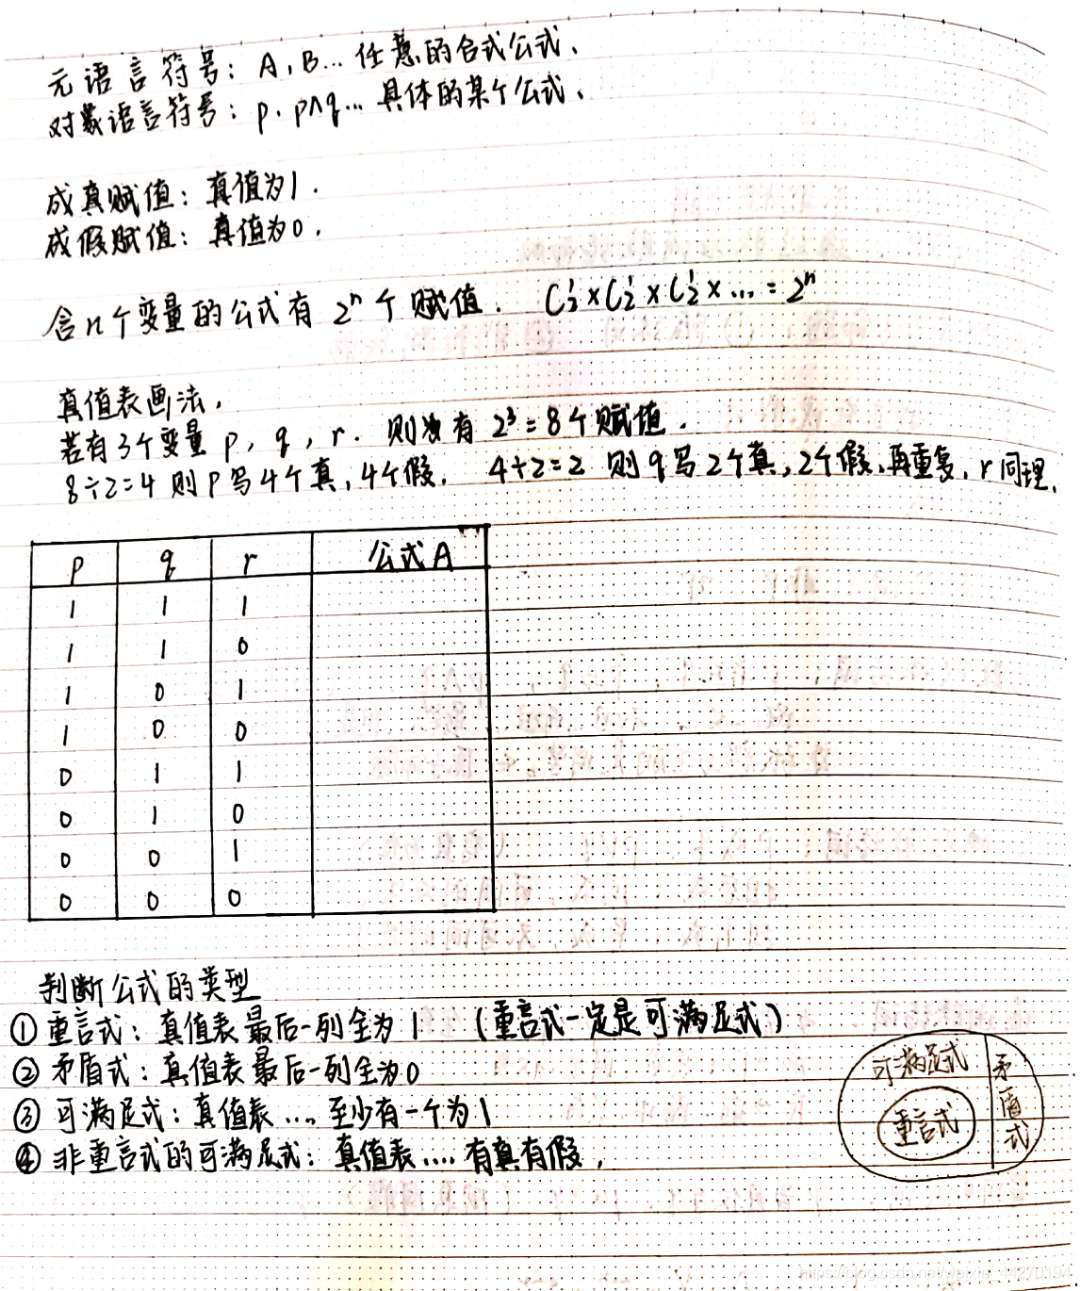 元语言符号：A，B… 任意的合式公式、
对象语言符号：p．p∧q… 具体的某个公式、
成真赋值：真值为1．
成假赋值：真值为0．
含n个变量的公式有 2ⁿ 个赋值． C₂¹×C₂¹×C₂¹×…=2ⁿ
真值表画法，
若有3个变量 p，q，r．则有 2³=8个赋值．
8÷2=4 则 p 写4个真，4个假． 4÷2=2 则 q 写2个真，2个假，再重复，r 同理．
p q r 公式A
1 1 1
1 1 0
1 0 1
1 0 0
0 1 1
0 1 0
0 0 1
0 0 0
判断公式的类型
① 重言式：真值表最后一列全为1 （重言式一定是可满足式）
② 矛盾式：真值表最后一列全为0
③ 可满足式：真值表…．至少有一个为1
④ 非重言式的可满足式：真值表…．有真有假，
可满足式
重言式
矛盾式